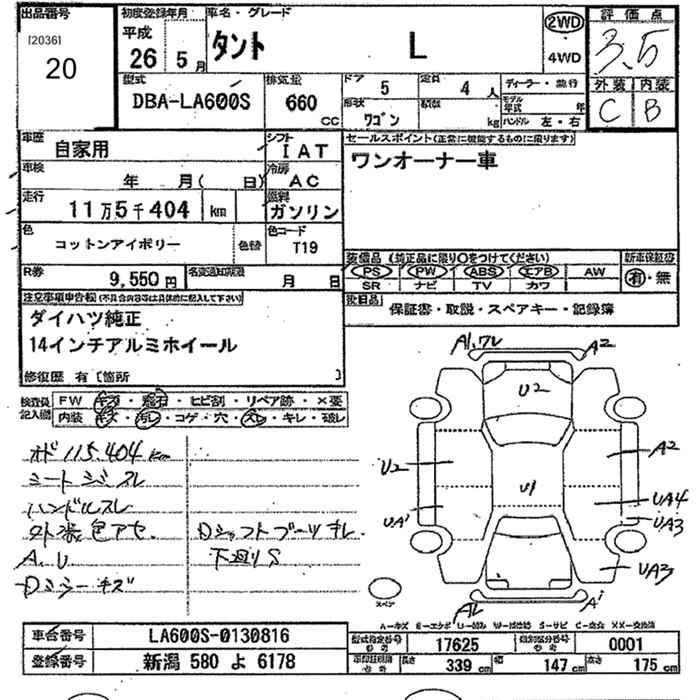 出品番号
[2036]
20
初度登録年月
平成
26 5 月
車名・グレード
タント L
2WD
4WD
評価点
3.5
外装 内装
C B
型式
DBA-LA600S
排気量
660 CC
ドア 5
定員 4 人
形状 ワゴン
積載 kg
ディーラー・並行
モデル年式 年
ハンドル 左・右
車歴
自家用
シフト
IAT
車検
年 月( 日)
冷房
AC
走行
11万5千404 km
燃料
ガソリン
色
コットンアイボリー
色替
色コード
T19
R券
9,550 円
名義変更期限
月 日
セールスポイント(正常に機能するものに限ります)
ワンオーナー車
装備品(純正品に限り○をつけてください)
新車保証書
PS PW ABS エアB AW
SR ナビ TV カワ
有・無
後日品
保証書・取説・スペアキー・記録簿
注意事項申告欄(不具合内容等は具体的に記入して下さい)
ダイハツ純正
14インチアルミホイール
修復歴 有〔箇所 〕
検査員記入欄
FW キズ・飛石・ヒビ割・リペア跡・×要
内装 キズ・汚レ・コゲ・穴・スレ・キレ・破レ
オド 115.404 km
シートシミ スレ
ハンドルスレ
外装色アセ.
A.U
Dミラーキズ
Dシャフトブーツキレ
下廻りS
A1.ワレ
A2
U2
U2
A2
U1
UA4
UA1
UA3
UA3
A1
スペア
A－キズ E－エクボ U－凹み W－補修跡 S－サビ C－腐食 XX－交換済
車台番号
LA600S-0130816
登録番号
新潟 580 よ 6178
型式指定番号
17625
類別区分番号
0001
長さ 339 cm
幅 147 cm
高さ 175 cm